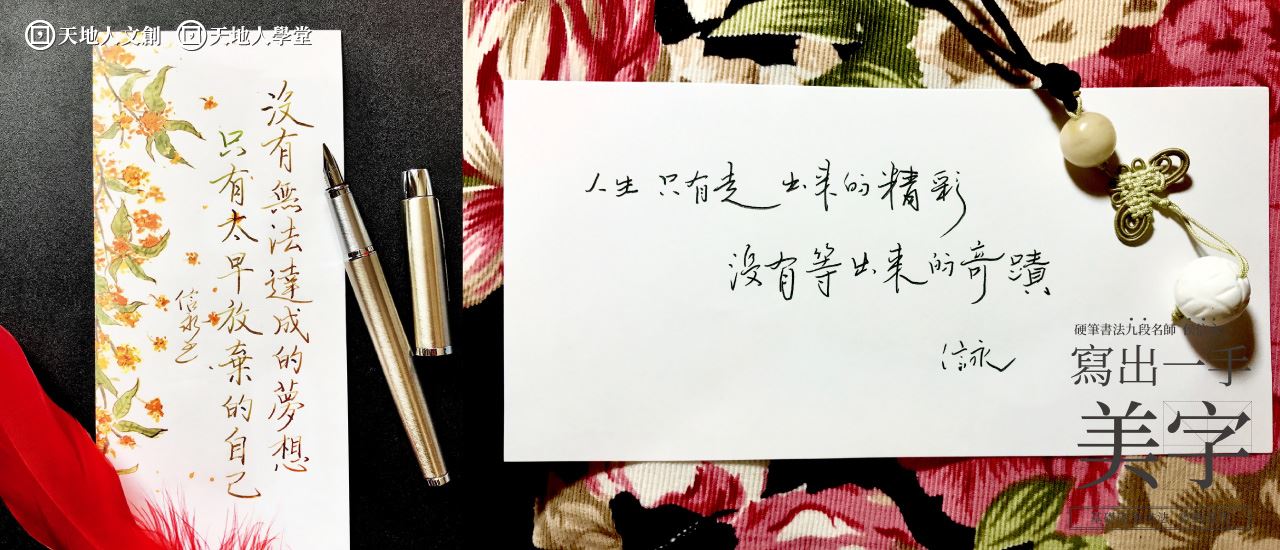 天地人文創 天地人學堂
沒有無法達成的夢想
只有太早放棄的自己
信永
人生只有走出來的精彩
沒有等出來的奇蹟
信永
硬筆書法九段名師
寫出一手
美字